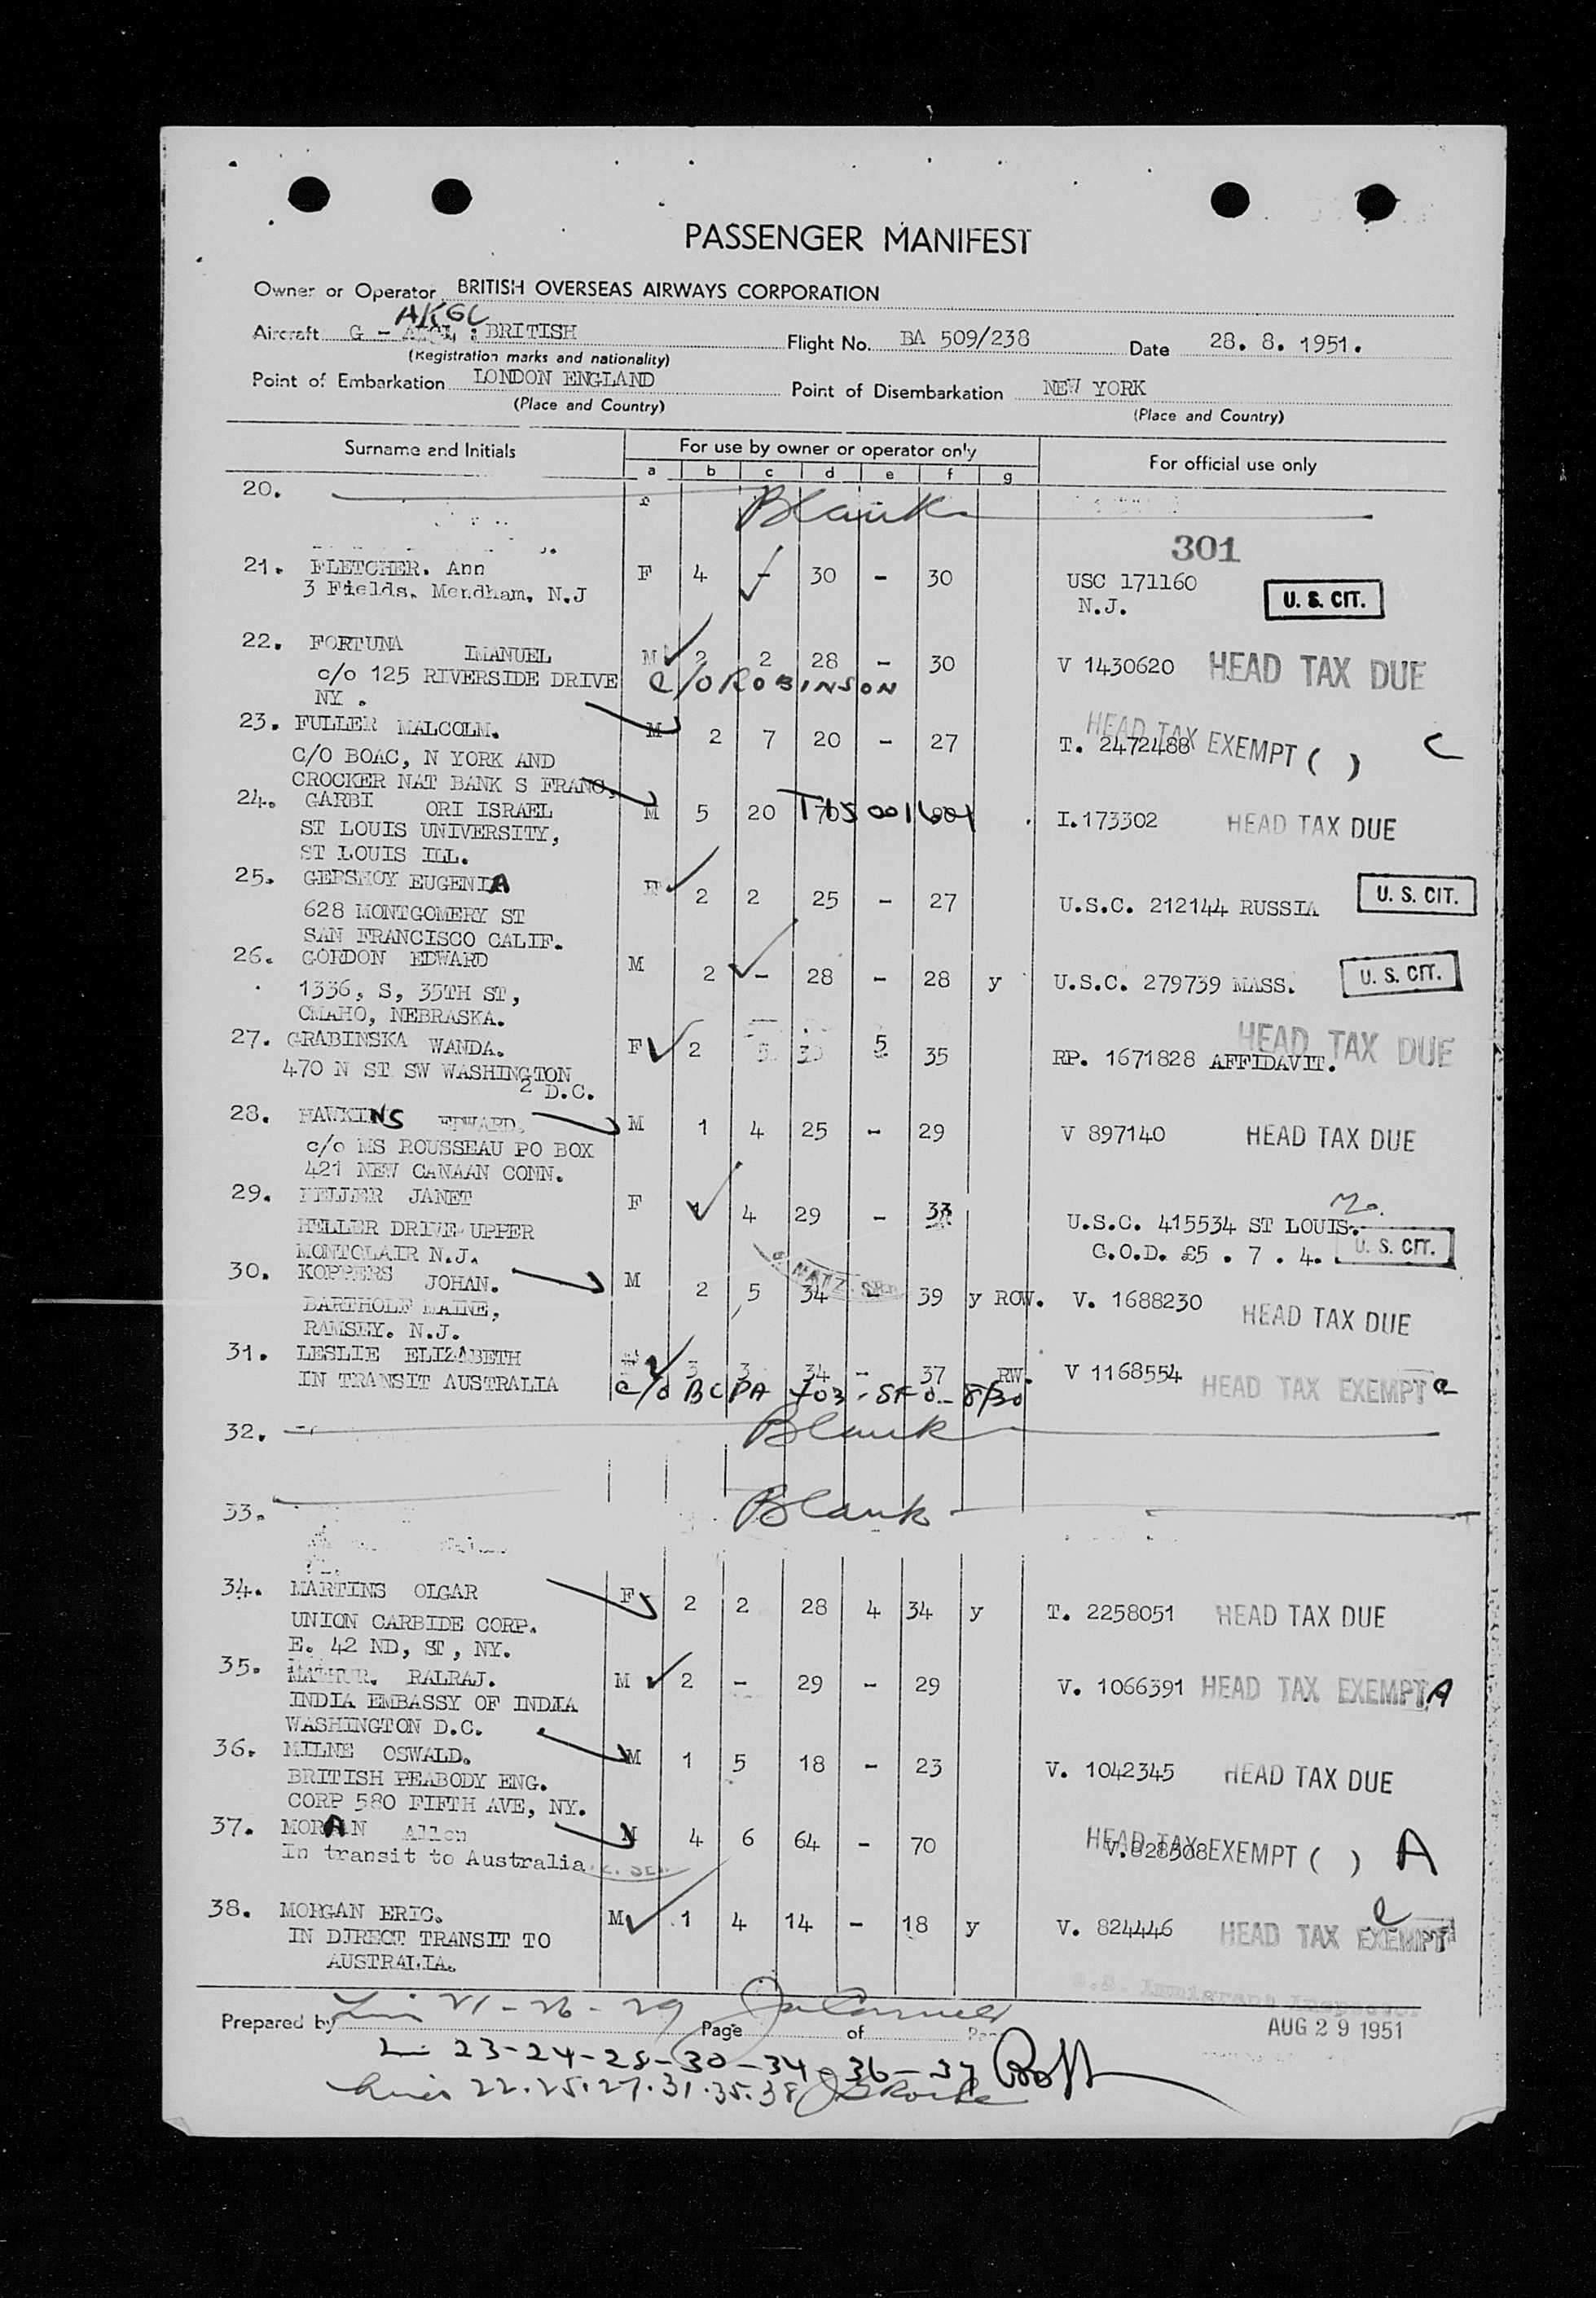 PASSENGER MANIFEST
Owner or Operator BRITISH OVERSEAS AIRWAYS CORPORATION
AKGC
Aircraft G - : BRITISH Flight No. BA 509/238 Date 28. 8. 1951.
(Registration marks and nationality)
Point of Embarkation LONDON ENGLAND Point of Disembarkation NEW YORK
(Place and Country) (Place and Country)
Surname and Initials For use by owner or operator only For official use only
a b c d e f g
20. Blank
301
21. FLETCHER. Ann F 4 - 30 - 30 USC 171160
3 Fields. Mendham, N.J N.J. U. S. CIT.
22. FORTUNA IMANUEL M 2 2 28 - 30 V 1430620 HEAD TAX DUE
c/o 125 RIVERSIDE DRIVE c/o ROBINSON
NY .
23. FULLER MALCOLM. M 2 7 20 - 27 T. 2472488 HEAD TAX EXEMPT ( ) C
C/O BOAC, N YORK AND
CROCKER NAT BANK S FRANC,
24. GARBI ORI ISRAEL M 5 20 I.173302 HEAD TAX DUE
ST LOUIS UNIVERSITY,
ST LOUIS ILL.
25. GERSHOY EUGENIA 2 2 25 - 27 U.S.C. 212144 RUSSIA U. S. CIT.
628 MONTGOMERY ST
SAN FRANCISCO CALIF.
26. GORDON EDWARD M 2 - 28 - 28 y U.S.C. 279739 MASS. U. S. CIT.
1336, S, 35TH ST,
OMAHO, NEBRASKA.
27. GRABINSKA WANDA. F 2 5 35 RP. 1671828 AFFIDAVIT. HEAD TAX DUE
470 N ST SW WASHINGTON
2 D.C.
28. HAWKINS EDWARD. M 1 4 25 - 29 V 897140 HEAD TAX DUE
c/o MS ROUSSEAU PO BOX
421 NEW CANAAN CONN.
29. HELLER JANET F 4 29 - 33 U.S.C. 415534 ST LOUIS. Mo.
HELLER DRIVE UPPER C.O.D. £5 . 7 . 4. U. S. CIT.
MONTCLAIR N.J.
30. KOPPERS JOHAN. M 2 5 34 - 39 y ROW. V. 1688230 HEAD TAX DUE
BARTHOLF MAINE,
RAMSEY. N.J.
31. LESLIE ELIZABETH 3 3 34 - 37 RW. V 1168554 HEAD TAX EXEMPT
IN TRANSIT AUSTRALIA c/o BCPA 703 - SFO - 8/30
32. Blank
33. Blank
34. MARTINS OLGAR F 2 2 28 4 34 y T. 2258051 HEAD TAX DUE
UNION CARBIDE CORP.
E. 42 ND, ST, NY.
35. MATHUR. RALRAJ. M 2 - 29 - 29 V. 1066391 HEAD TAX EXEMPT A
INDIA EMBASSY OF INDIA
WASHINGTON D.C.
36. MILNE OSWALD. M 1 5 18 - 23 V. 1042345 HEAD TAX DUE
BRITISH PEABODY ENG.
CORP 580 FIFTH AVE, NY.
37. MORAN Allen M 4 6 64 - 70 V.828308 HEAD TAX EXEMPT ( ) A
In transit to Australia
38. MORGAN ERIC. M 1 4 14 - 18 y V. 824446 HEAD TAX EXEMPT
IN DIRECT TRANSIT TO
AUSTRALIA.
Prepared by 21 - 26 - 29 Page of
AUG 29 1951
23-24-28-30-34-36-37
Lines 22.25.27.31.35.38